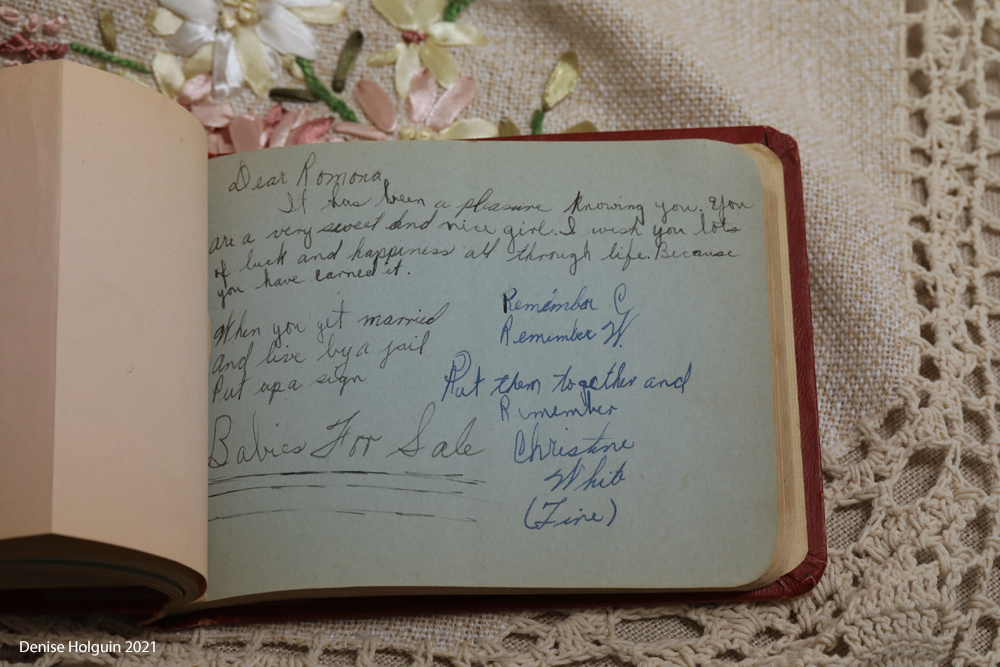 Dear Romona
It has been a pleasure knowing you. You
are a very sweet and nice girl. I wish you lots
of luck and happiness all through life. Because
you have earned it.
When you get married
and live by a jail
Put up a sign
Babies For Sale
Remember C
Remember W.
Put them together and
Remember
Christine
White
(Tine)
Denise Holguin 2021